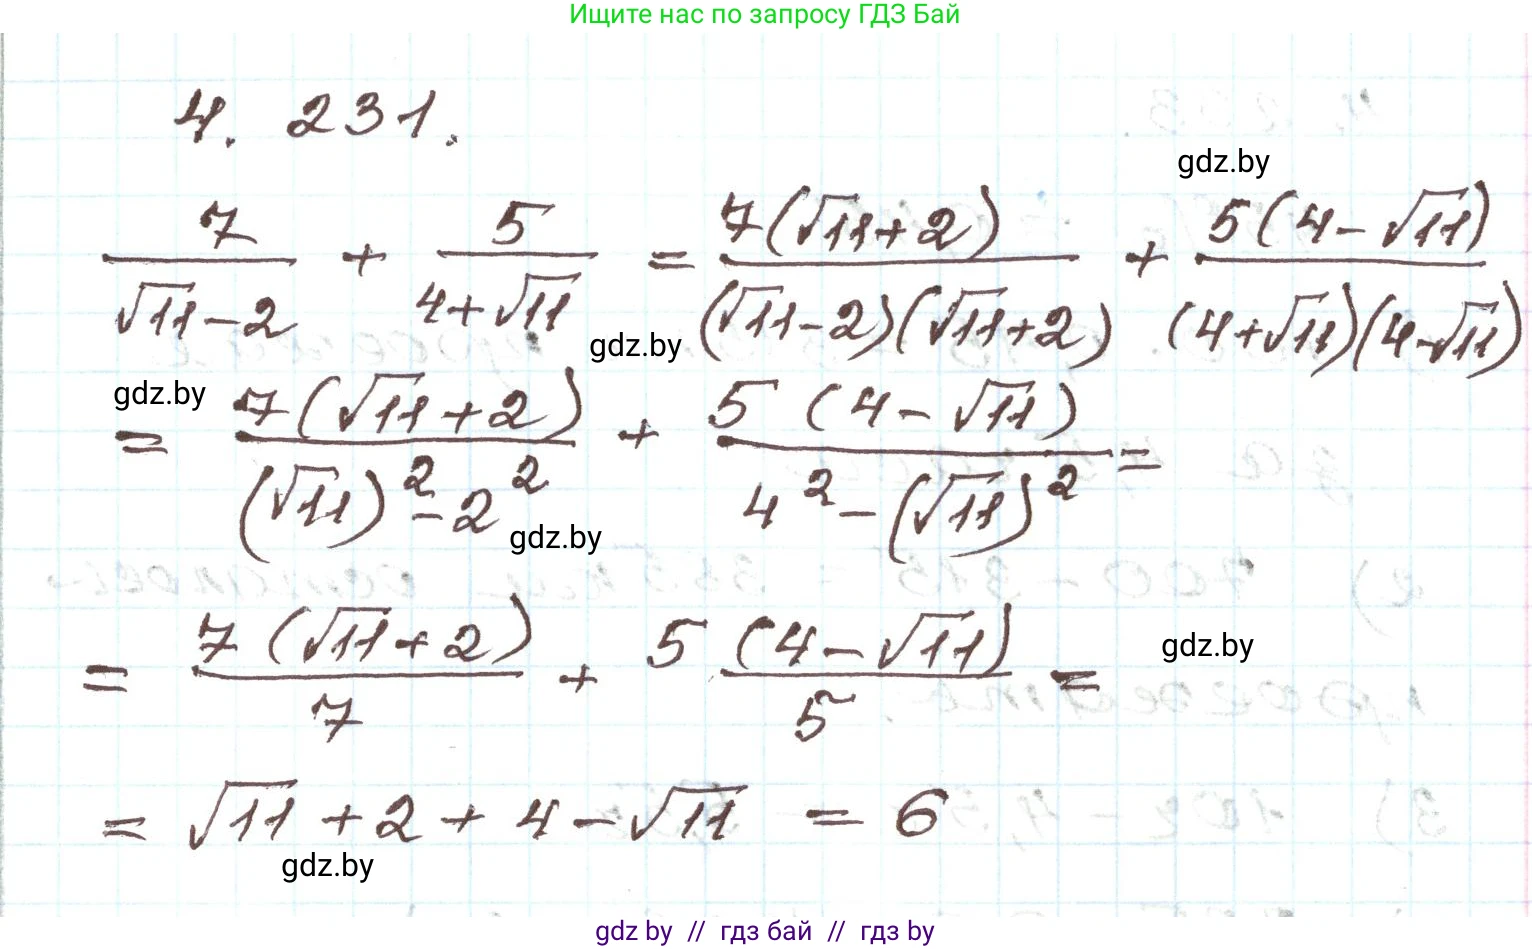 Ищите нас по запросу ГДЗ Бай
4. 231.
gdz.by
7/(√11−2) + 5/(4+√11) = 7(√11+2)/((√11−2)(√11+2)) + 5(4−√11)/((4+√11)(4−√11))
gdz.by
gdz.by
= 7(√11+2)/((√11)²−2²) + 5(4−√11)/(4²−(√11)²) =
gdz.by
= 7(√11+2)/7 + 5(4−√11)/5 =
gdz.by
= √11 + 2 + 4 − √11 = 6
gdz.by
gdz by // гдз бай // гдз by